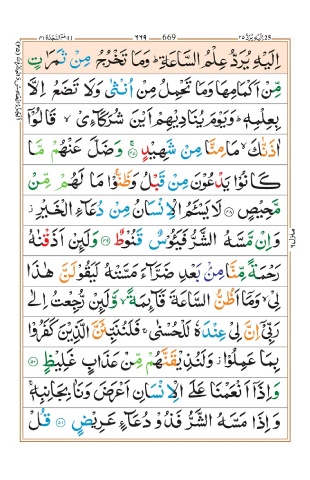 669
اِلَيْهِ يُرَدُّ عِلْمُ السَّاعَةِ ؕ وَمَا تَخْرُجُ مِنْ ثَمَرٰتٍ
مِّنْ اَكْمَامِهَا وَمَا تَحْمِلُ مِنْ اُنْثٰى وَلَا تَضَعُ اِلَّا
بِعِلْمِهٖ ؕ وَيَوْمَ يُنَادِيْهِمْ اَيْنَ شُرَكَآءِىْ ۙ قَالُوْۤا
اٰذَنّٰكَ ۙ مَا مِنَّا مِنْ شَهِيْدٍ ۚ‏ ﴿۴۷﴾ وَضَلَّ عَنْهُمْ مَّا
كَانُوْا يَدْعُوْنَ مِنْ قَبْلُ وَظَنُّوْا مَا لَهُمْ مِّنْ
مَّحِيْصٍ ﴿۴۸﴾ لَا يَسْـَٔمُ الْاِنْسَانُ مِنْ دُعَآءِ الْخَيْرِ ؗ
وَاِنْ مَّسَّهُ الشَّرُّ فَيَـُٔوْسٌ قَنُوْطٌ ﴿۴۹﴾ وَلَئِنْ اَذَقْنٰهُ
رَحْمَةً مِّنَّا مِنْۢ بَعْدِ ضَرَّآءَ مَسَّتْهُ لَيَقُوْلَنَّ هٰذَا
لِىْ ۙ وَمَاۤ اَظُنُّ السَّاعَةَ قَآئِمَةً ۙ وَّلَئِنْ رُّجِعْتُ اِلٰى
رَبِّىْۤ اِنَّ لِىْ عِنْدَهٗ لَلْحُسْنٰى ۚ فَلَنُنَبِّئَنَّ الَّذِيْنَ كَفَرُوْا
بِمَا عَمِلُوْا ؗ وَلَنُذِيْقَنَّهُمْ مِّنْ عَذَابٍ غَلِيْظٍ ﴿۵۰﴾
وَاِذَاۤ اَنْعَمْنَا عَلَى الْاِنْسَانِ اَعْرَضَ وَنَاٰ بِجَانِبِهٖ ۚ
وَاِذَا مَسَّهُ الشَّرُّ فَذُوْ دُعَآءٍ عَرِيْضٍ ﴿۵۱﴾ قُلْ